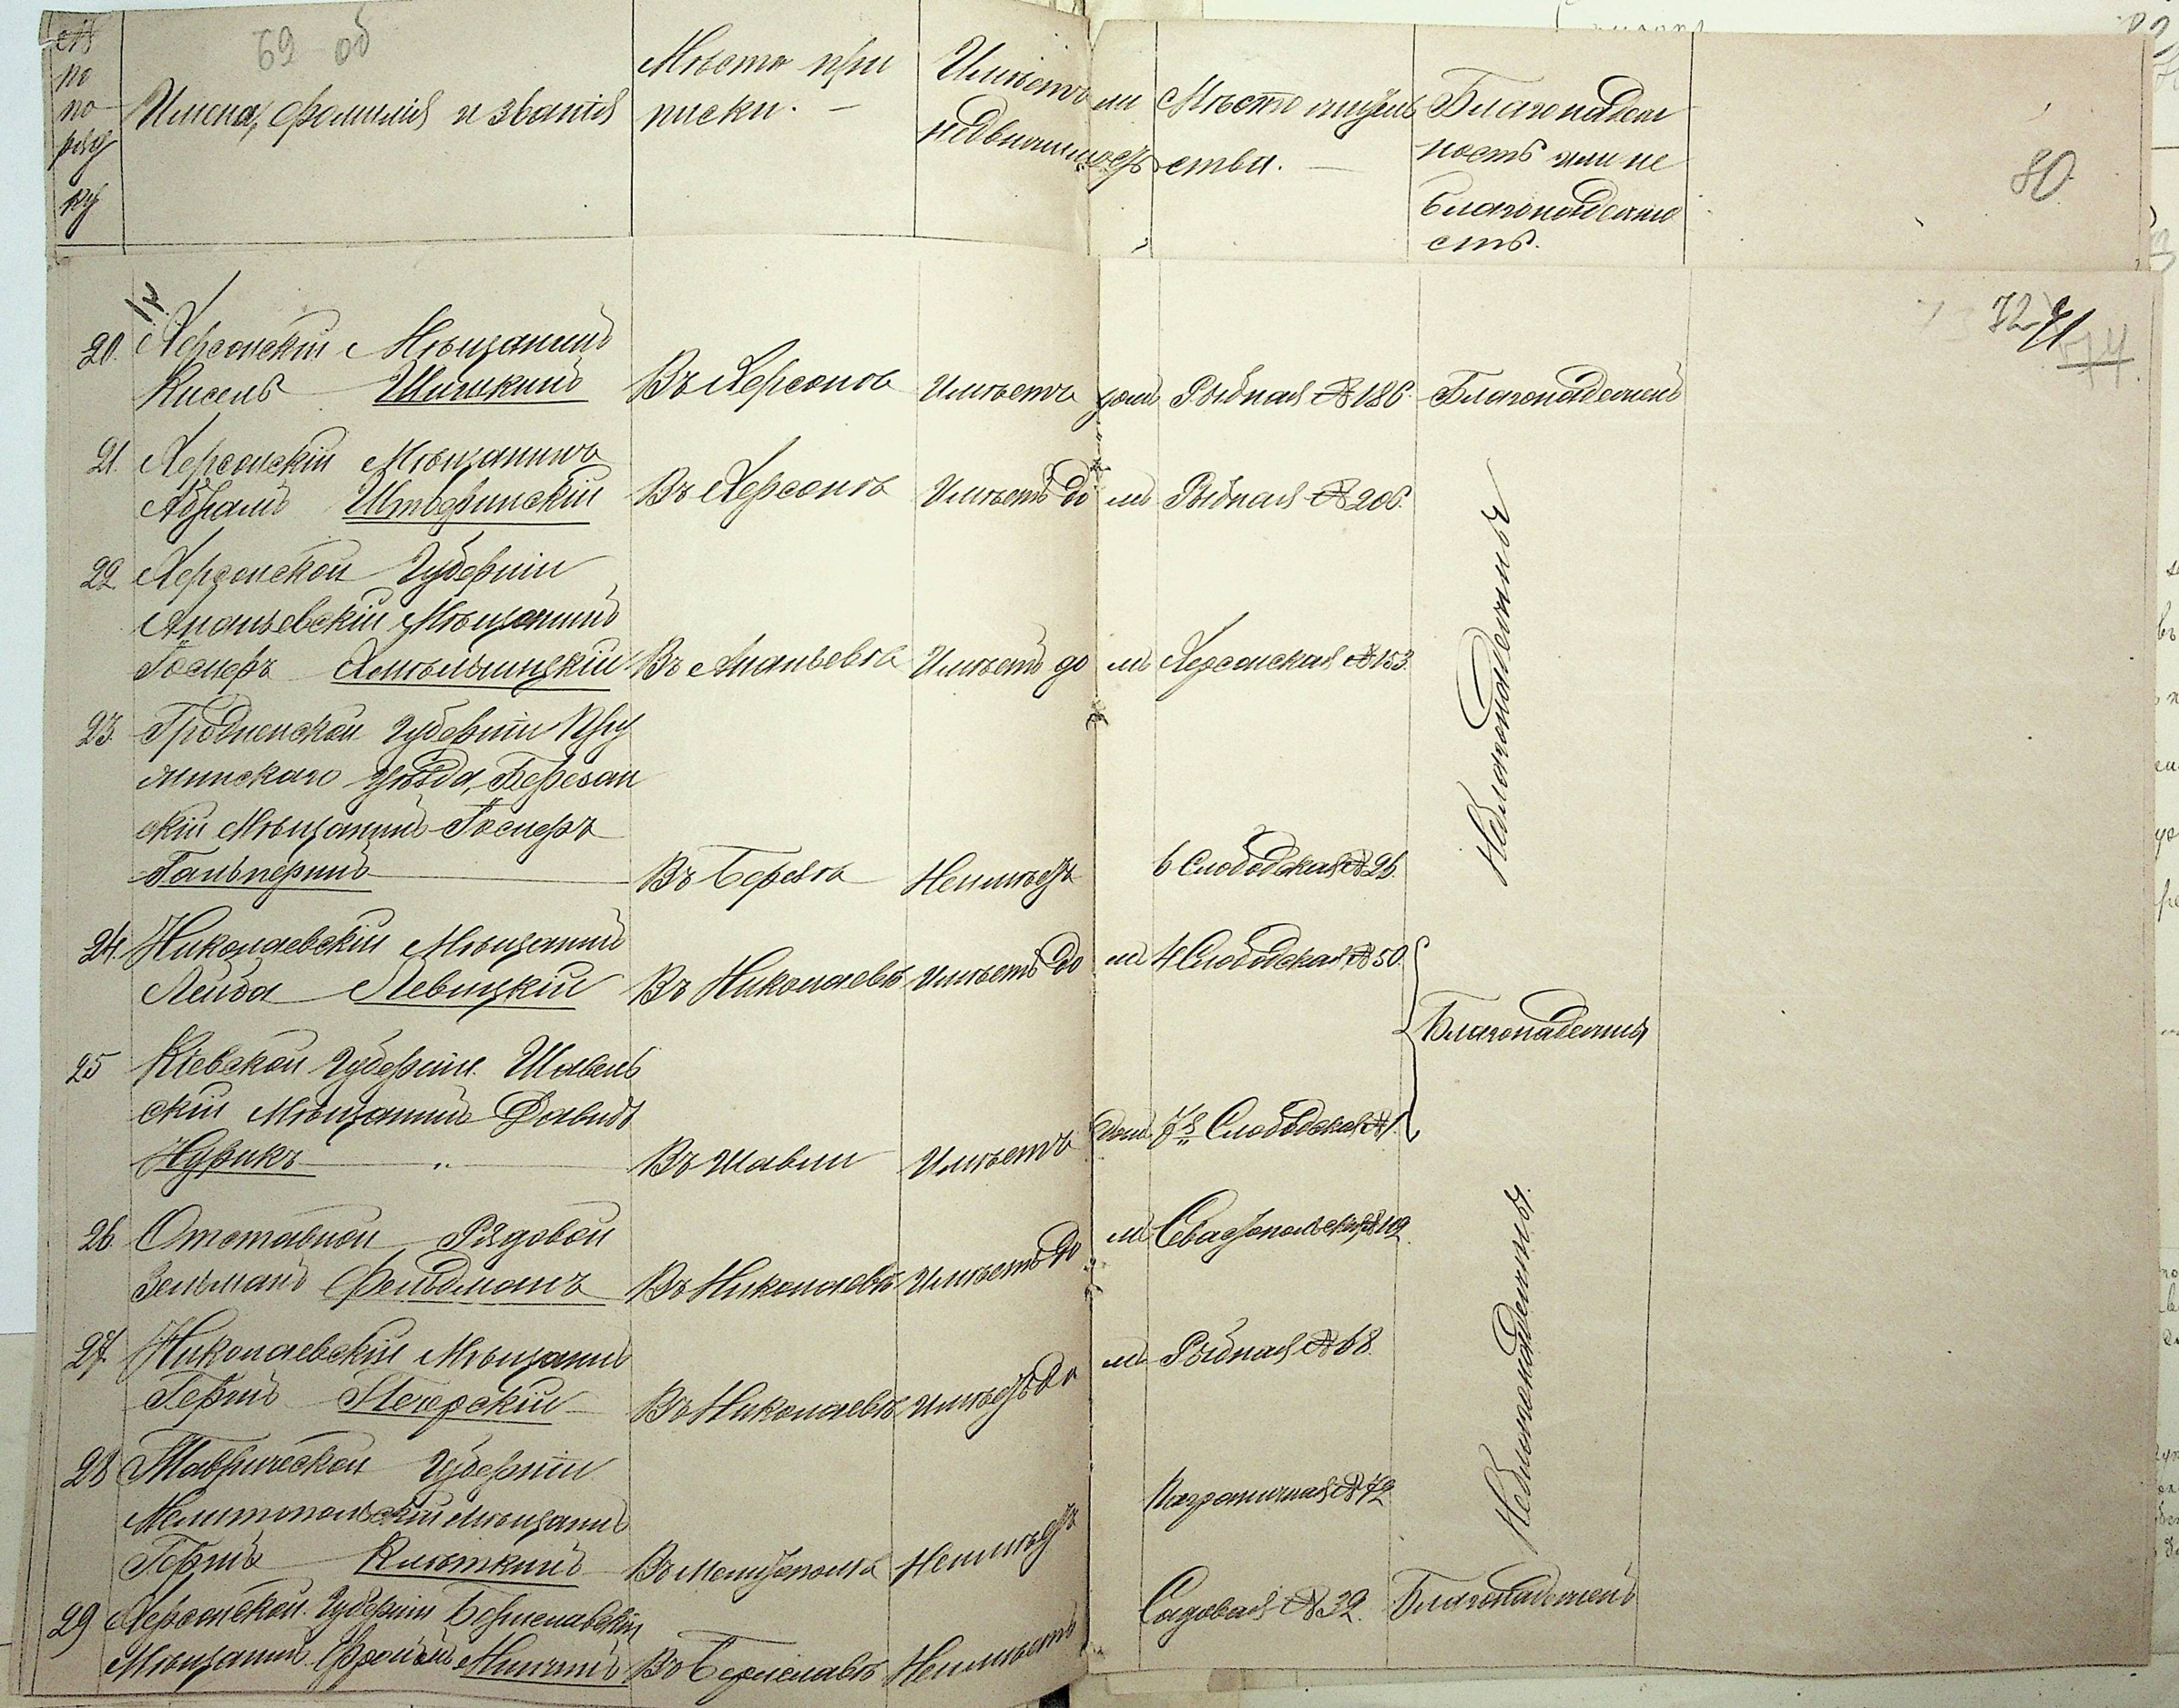 69 об
№ по порядку
Имена, фамилія и званія
Мѣсто приписки. —
Имѣетъ ли недвижимость
Мѣсто жительства. —
Благонадежность или неблагонадежность.
80
72
71
74
20. Херсонскій Мѣщанинъ
Кисель Шишкинъ Въ Херсонѣ Имѣетъ домъ Рыбная № 186. Благонадеженъ
21. Херсонскій Мѣщанинъ
Абрамъ Въ Херсонѣ Имѣетъ домъ Рыбная № 206.
22 Херсонской Губерніи
Ананьевскій Мѣщанинъ
Іосифъ Хмѣльницкій Въ Ананьевѣ Имѣетъ домъ Херсонская № 153
Неблагонадежные
23. Гродненской Губерніи Пру
жинскаго уѣзда, Березан
скій Мѣщанинъ Іосифъ
Гальперинъ Въ Березѣ Неимѣетъ 6 Слободская № 26.
24. Николаевскій Мѣщанинъ
Лейба Левицкій Въ Николаевѣ Имѣетъ домъ 4 Слободская № 50.
Благонадежны
25 Кіевской Губерніи. Шавель
скій Мѣщанинъ Давидъ
Нурикъ „ Въ Шавли Имѣетъ домъ 7я Слободская № 1.
26. Отставной Рядовой
Зельманъ Фельдманъ Въ Николаевѣ Имѣетъ домъ Севастопольская № 112.
27. Николаевскій Мѣщанинъ
Герш Печерскій Въ Николаевѣ Имѣетъ домъ Рыбная № 68.
Неблагонадежны.
28 Таврической Губерніи
Мелитопольскій Мѣщанинъ
Гершъ Въ Мелитополѣ Неимѣетъ Пограничная № 72
29 Херсонской Губерніи Бериславскій
Мѣщанинъ Въ Бериславѣ Неимѣетъ Садовая № 32. Благонадеженъ